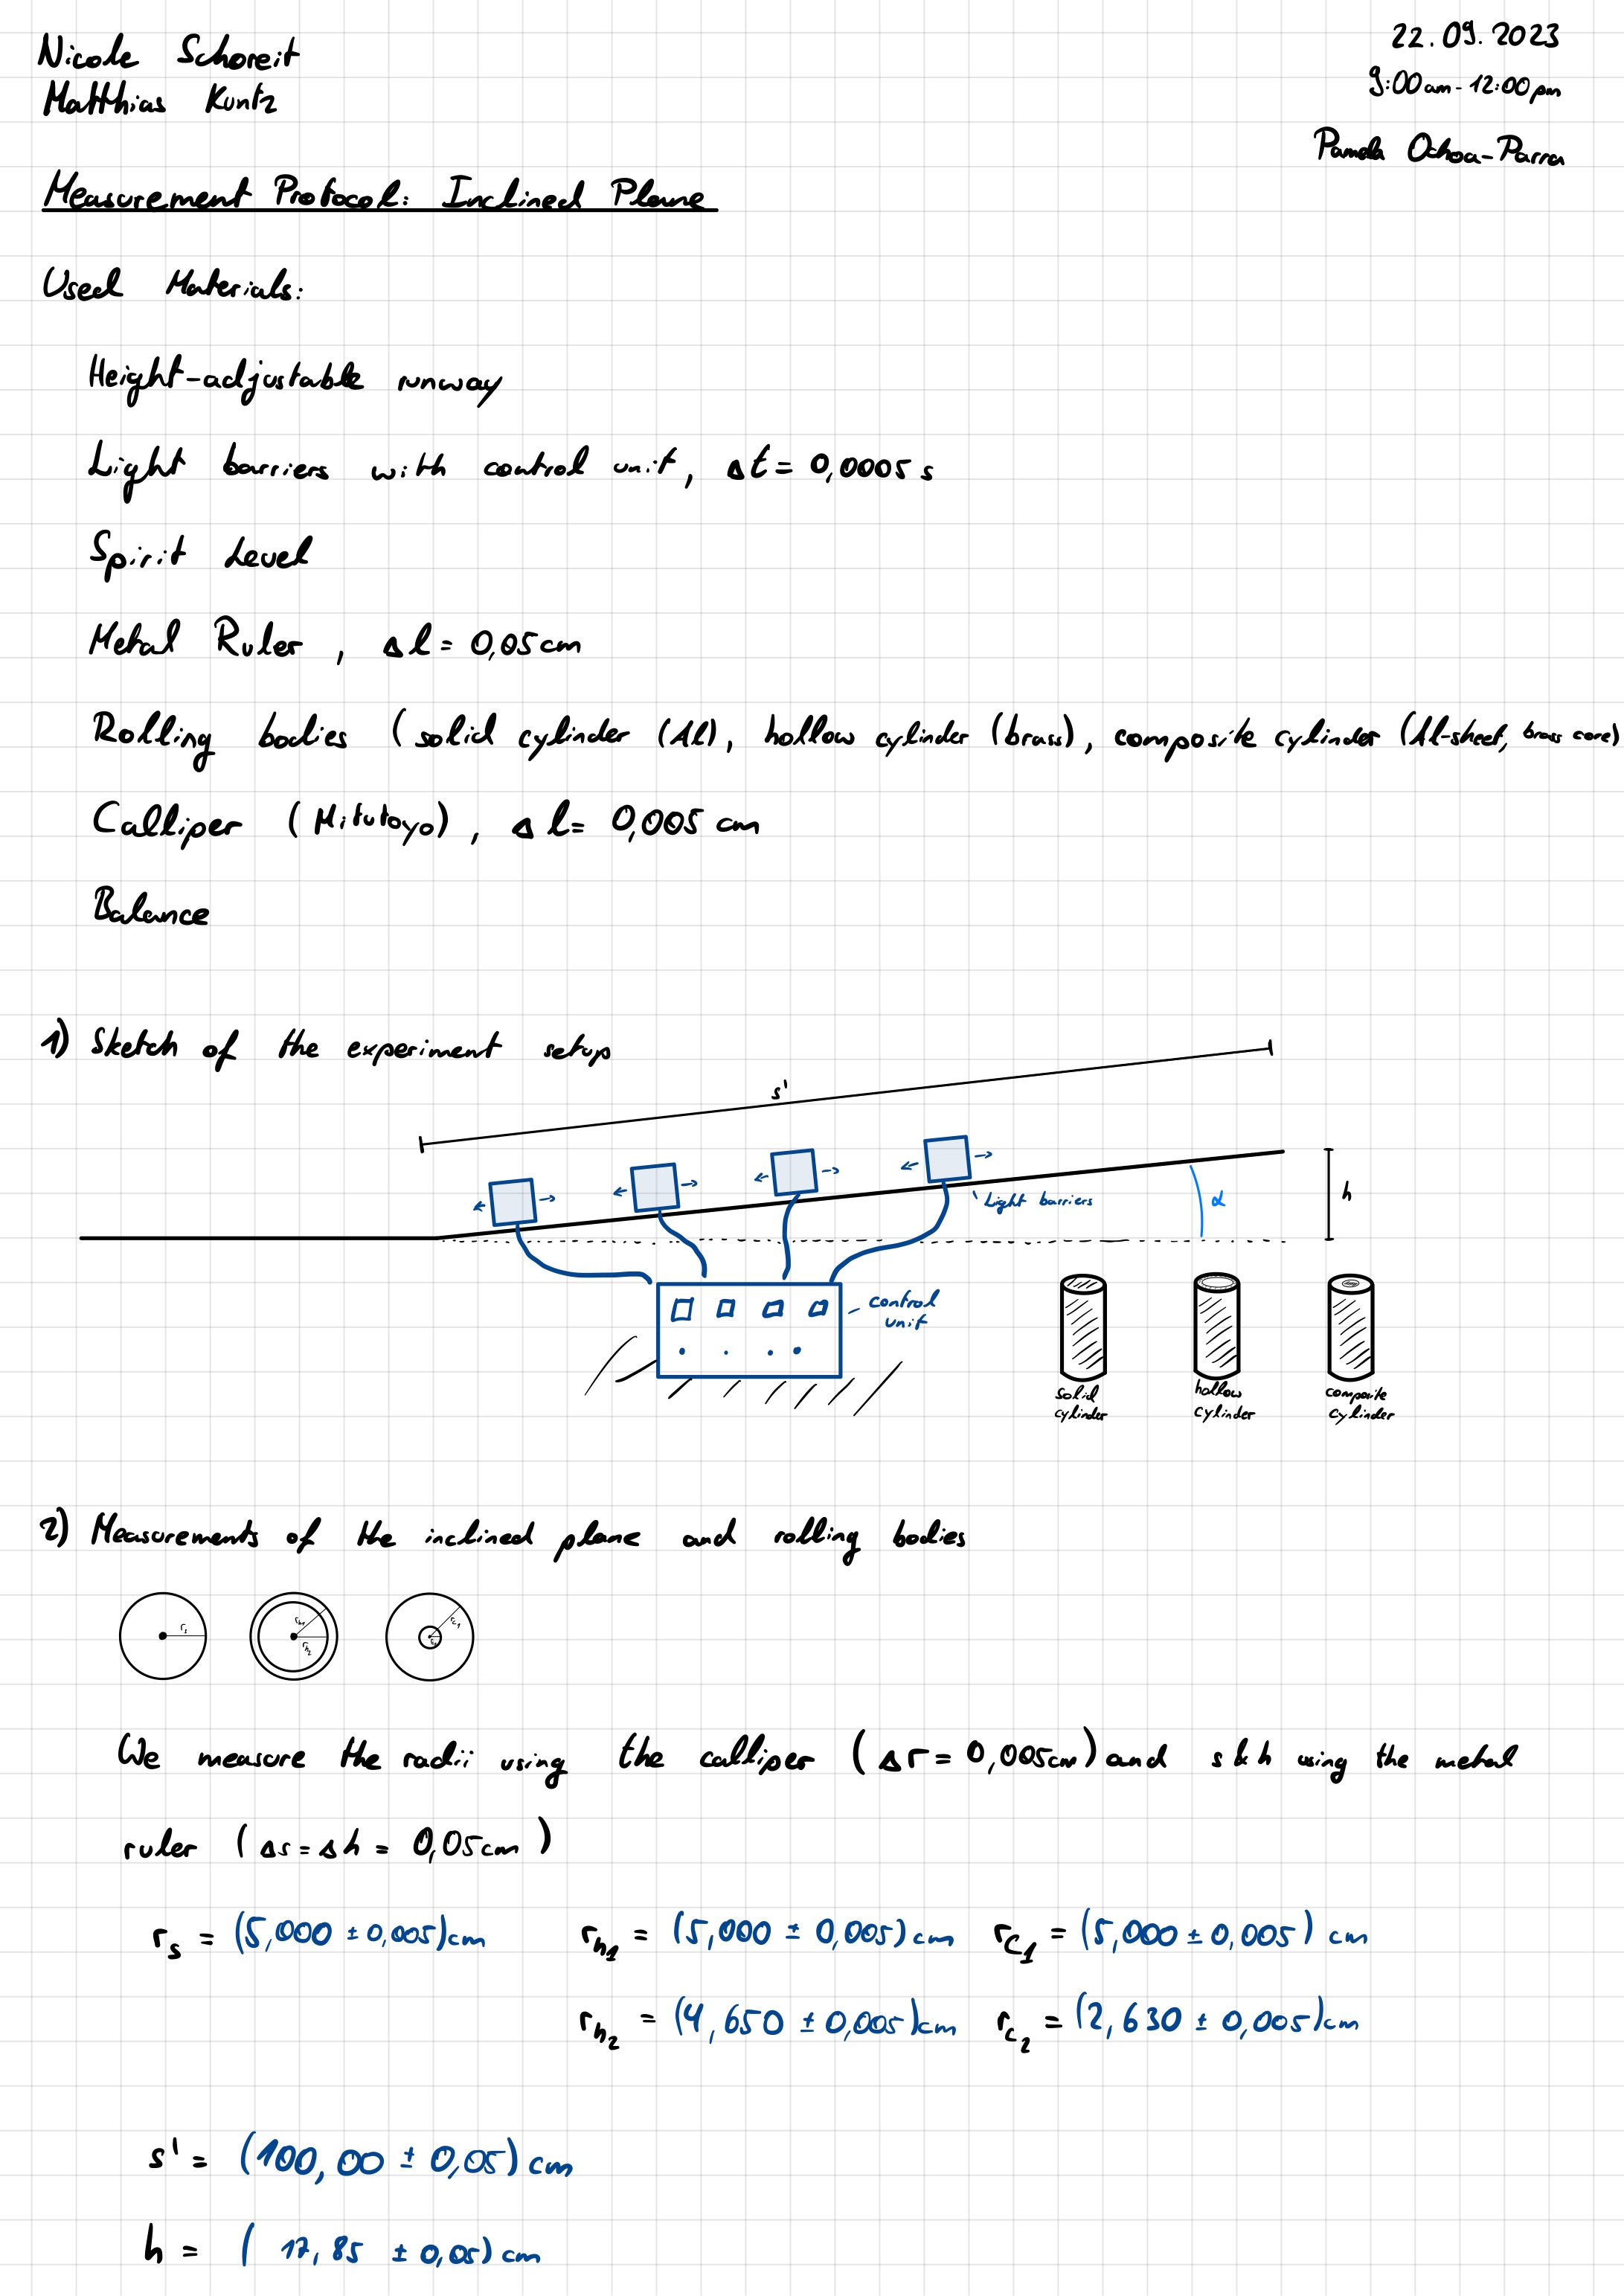 Nicole Schoreit
Matthias Kuntz
22.09.2023
9:00am - 12:00pm
Pamela Ochoa-Parra
Measurement Protocol: Inclined Plane
Used Materials:
Height-adjustable runway
Light barriers with control unit, Δt = 0,0005 s
Spirit Level
Metal Ruler, Δl = 0,05cm
Rolling bodies (solid cylinder (Al), hollow cylinder (brass), composite cylinder (Al-sheet, brass core)
Calliper (Mitutoyo), Δl = 0,005 cm
Balance
1) Sketch of the experiment setup
s'
Light barriers
α
h
control
unit
solid
cylinder
hollow
cylinder
composite
cylinder
2) Measurements of the inclined plane and rolling bodies
We measure the radii using the calliper (Δr = 0,005cm) and s & h using the metal
ruler (Δs = Δh = 0,05cm)
r_s = (5,000 ± 0,005)cm r_h1 = (5,000 ± 0,005)cm r_C1 = (5,000 ± 0,005) cm
r_h2 = (4,650 ± 0,005)cm r_c2 = (2,630 ± 0,005)cm
s' = (100,00 ± 0,05) cm
h = (17,85 ± 0,05) cm